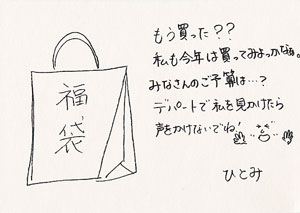 福袋
もう買った??
私も今年は買ってみよっかなぁ。
みなさんのご予算は…?
デパートで私を見かけたら
声をかけないでね!
ひとみ